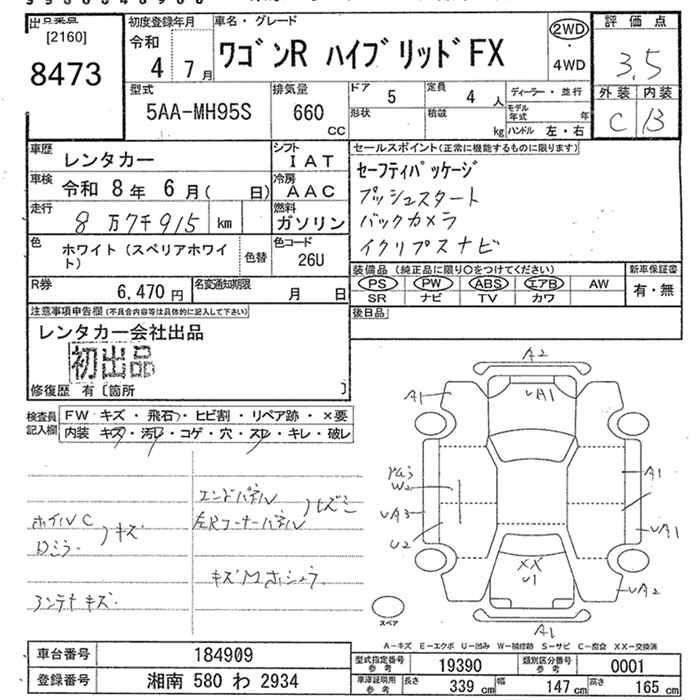 出品番号
[2160]
8473
初度登録年月
令和
4 7月
車名・グレード
ワゴンR ハイブリッドFX
2WD
・
4WD
評価点
3.5
外装 内装
C B
型式
5AA-MH95S
排気量
660
CC
ドア 5
定員 4 人
形状
積載 kg
ディーラー・並行
モデル年式 年
ハンドル 左・右
車歴 レンタカー
シフト IAT
車検 令和 8年 6月( 日)
冷房 AAC
走行 8万7千915 km
燃料 ガソリン
色 ホワイト (スペリアホワイト)
色替
色コード 26U
R券 6,470円
名変通知期限 月 日
セールスポイント(正常に機能するものに限ります)
セーフティパッケージ
プッシュスタート
バックカメラ
イクリプスナビ
装備品 (純正品に限り○をつけてください)
PS PW ABS エアB AW
SR ナビ TV カワ
新車保証書
有・無
後日品
注意事項申告欄(不具合内容等は具体的に記入して下さい)
レンタカー会社出品
初出品
修復歴 有 [箇所 ]
検査員記入欄
FW キズ・飛石・ヒビ割・リペア跡・×要
内装 キズ・汚レ・コゲ・穴・スレ・キレ・破レ
ホイルC
Dミラー
キズ
アンテナキズ
エンドパネル
左Rコーナーパネル
キズMホシュウ
A2
A1
UA1
W2
UA3
U2
A1
UA1
UA2
XX
U1
A1
スペア
A-キズ E-エクボ U-凹み W-補修跡 S-サビ C-腐食 XX-交換済
車台番号 184909
登録番号 湘南 580 わ 2934
型式指定番号 参考 19390
類別区分番号 参考 0001
車庫証明用 参考 長さ 339 cm 幅 147 cm 高さ 165 cm